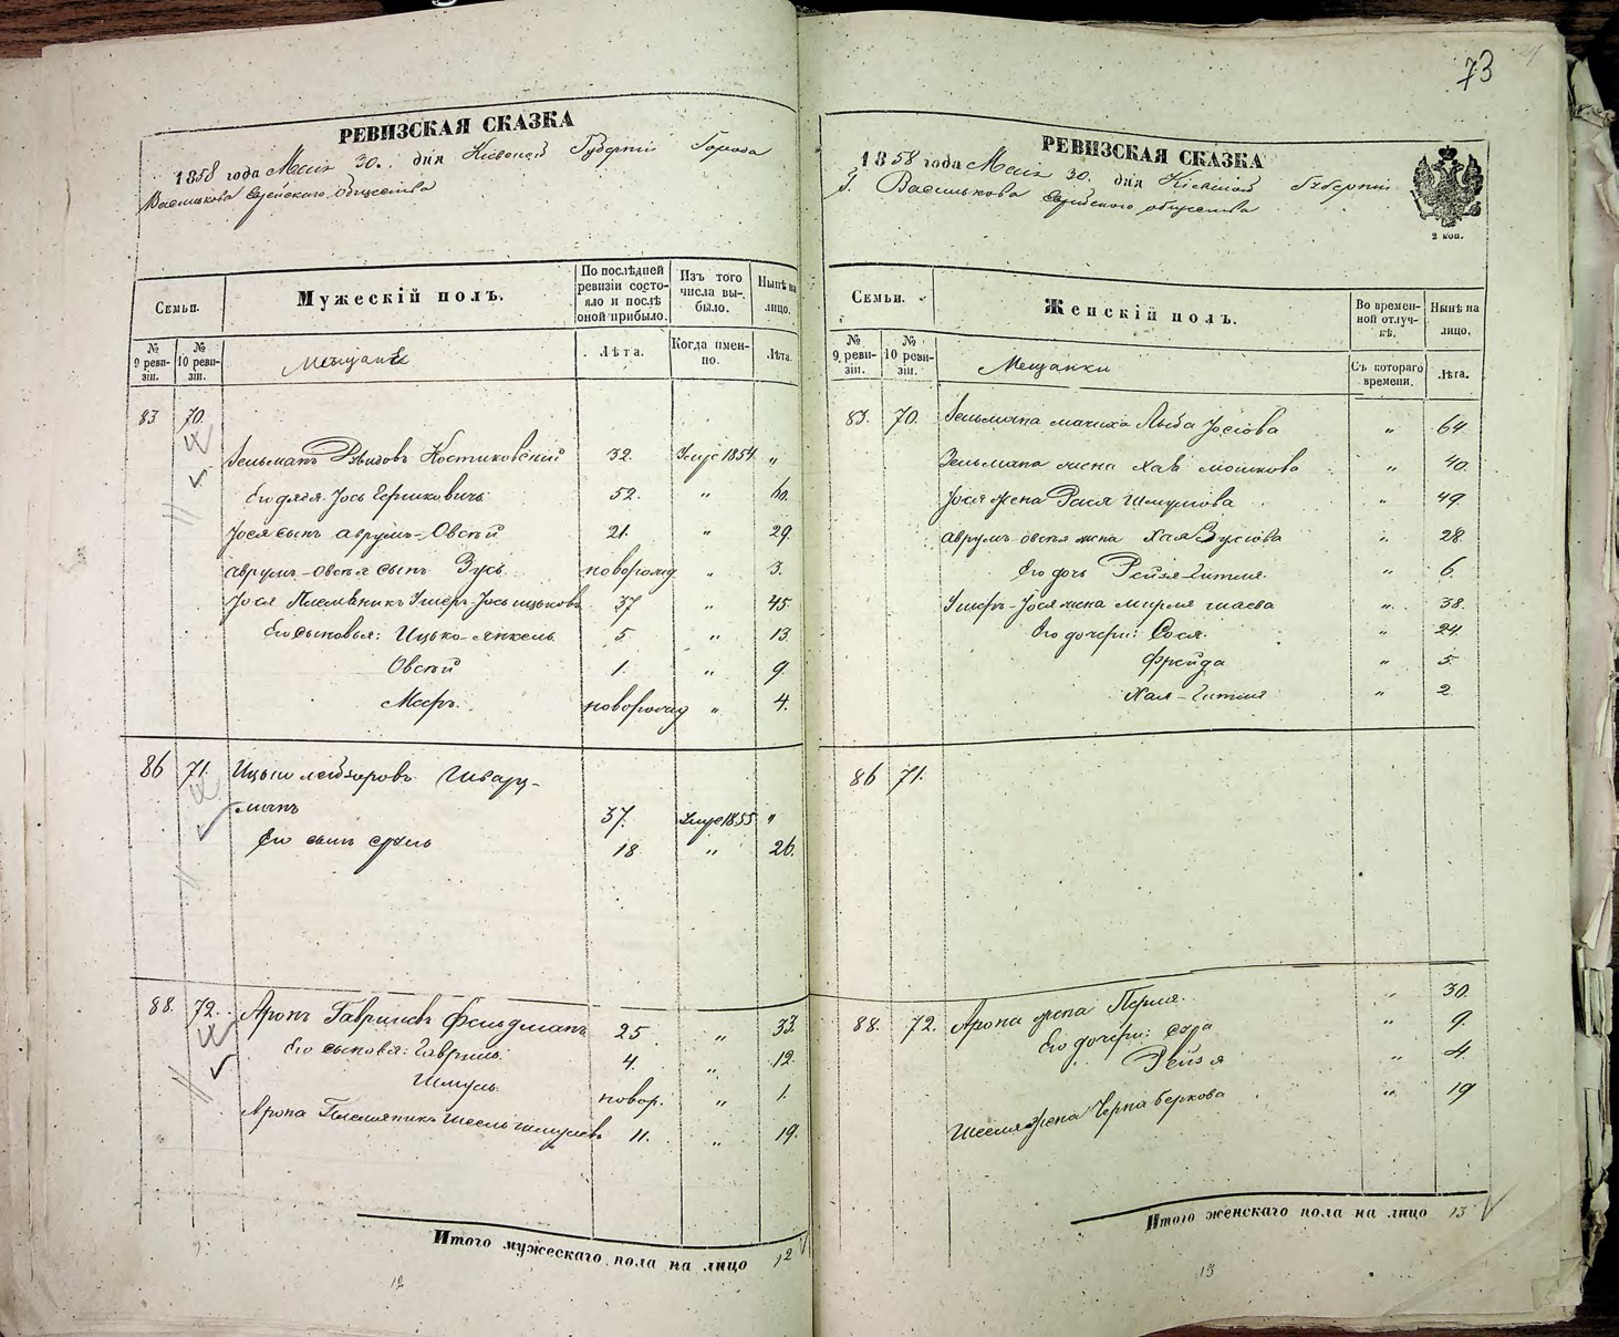 73
РЕВИЗСКАЯ СКАЗКА
1858 года Мая 30. дня Кіевской Губерніи Города
Василькова Еврейскаго общества
Семьи.
Мужескій полъ.
По послѣдней ревизіи состояло и послѣ оной прибыло.
Изъ того числа выбыло.
Нынѣ на лицо.
№ 9 ревизіи.
№ 10 ревизіи.
Мещане
Лѣта.
Когда именно.
Лѣта.
83 70.
Зельманъ Костиковскій 32. 1854 "
Его дядя Іось Гершковичъ 52. " 60.
Іося сынъ Аврумъ-Овсей 21. " 29
Аврумъ-Овсея сынъ Зусь новорожд " 3.
Іося племянникъ Ушеръ-Іось Ицьковъ 37 " 45
Его сыновья: Ицько-Янкель 5. " 13
Овсей 1. " 9.
Мееръ. новорожд " 4.
86 71. Ицько Лейзеровъ Шварцманъ 37. 1855 "
Его сынъ Срхль 18. " 26.
88. 72. Аронъ Гаврилевъ Фельдманъ 25 " 33.
Его сыновья: Гаврило. 4. " 12.
Шмуль. новор. " 1.
Арона племянникъ Шмулевъ 11. " 19.
Итого мужескаго пола на лицо 12
12
РЕВИЗСКАЯ СКАЗКА
1858 года Мая 30. дня Кіевской Губерніи
Г. Василькова Еврейскаго общества
2 коп.
Семьи.
Женскій полъ.
Во временной отлучкѣ.
Нынѣ на лицо.
№ 9 ревизіи.
№ 10 ревизіи.
Мещанки
Съ котораго времени.
Лѣта.
83. 70. Зельмана мачиха Лыба Іосіова " 64
Зельмана жена Хая Мошкова " 40.
Іося жена Рася Шмулова " 49.
Аврумъ-Овсея жена Хая Зусіова " 28
Его дочь Рейзя-Гитля. " 6.
Ушеръ-Іося жена Мирля Шаева " 38.
Его дочери: Сося. " 24.
Фрейда " 5.
Хая-Гитля " 2.
86 71.
88. 72. Арона жена Перля. " 30.
Его дочери: Сура " 9.
Рейзя " 4.
жена Черна Беркова " 19
Итого женскаго пола на лицо 13
13